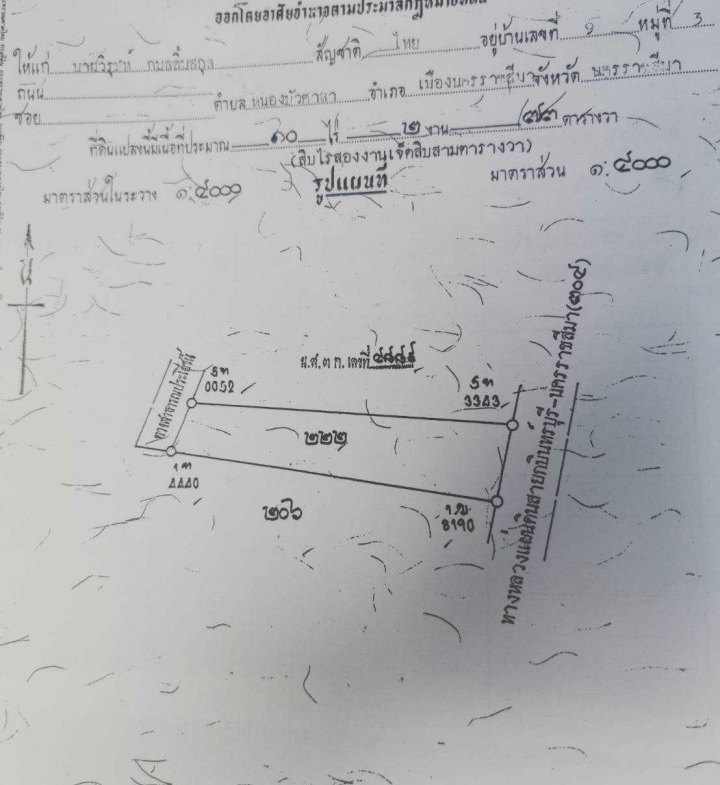 ออกโดยอาศัยอำนาจตามประมวลกฎหมายที่ดิน
ให้แก่ นาย สัญชาติ ไทย อยู่บ้านเลขที่ ๑ หมู่ที่ 3
ถนน
ซอย ตำบล หนองบัวศาลา อำเภอ เมืองนครราชสีมา จังหวัด นครราชสีมา
ที่ดินแปลงนี้มีเนื้อที่ประมาณ ๑๐ ไร่ ๒ งาน ๗๓ ตารางวา
(สิบไร่สองงานเจ็ดสิบสามตารางวา)
มาตราส่วนในระวาง ๑:๔๐๐๐ รูปแผนที่ มาตราส่วน ๑:๔๐๐๐
น
ทางสาธารณประโยชน์
น.ส.๓ ก. เลขที่
0052
3343
๒๒๒
4440
๒๐๖
8190
ทางหลวงแผ่นดินสายกบินทร์บุรี-นครราชสีมา(๓๐๔)